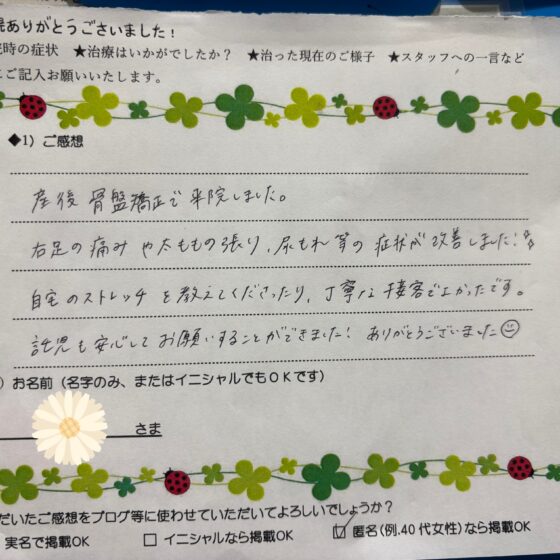 ありがとうございました！
時の症状　★治療はいかがでしたか？　★治った現在のご様子　★スタッフへの一言など
ご記入お願いいたします。
◆1）ご感想
産後骨盤矯正で来院しました。
右足の痛みや太ももの張り、尿もれ等の症状が改善しました！☆
自宅のストレッチを教えてくださったり、丁寧な接客でよかったです。
託児も安心してお願いすることができました！ありがとうございました☺
）お名前（名字のみ、またはイニシャルでもＯＫです）
さま
だいたご感想をブログ等に使わせていただいてよろしいでしょうか？
実名で掲載OK　□ イニシャルなら掲載OK　☑ 匿名(例.40代女性)なら掲載OK